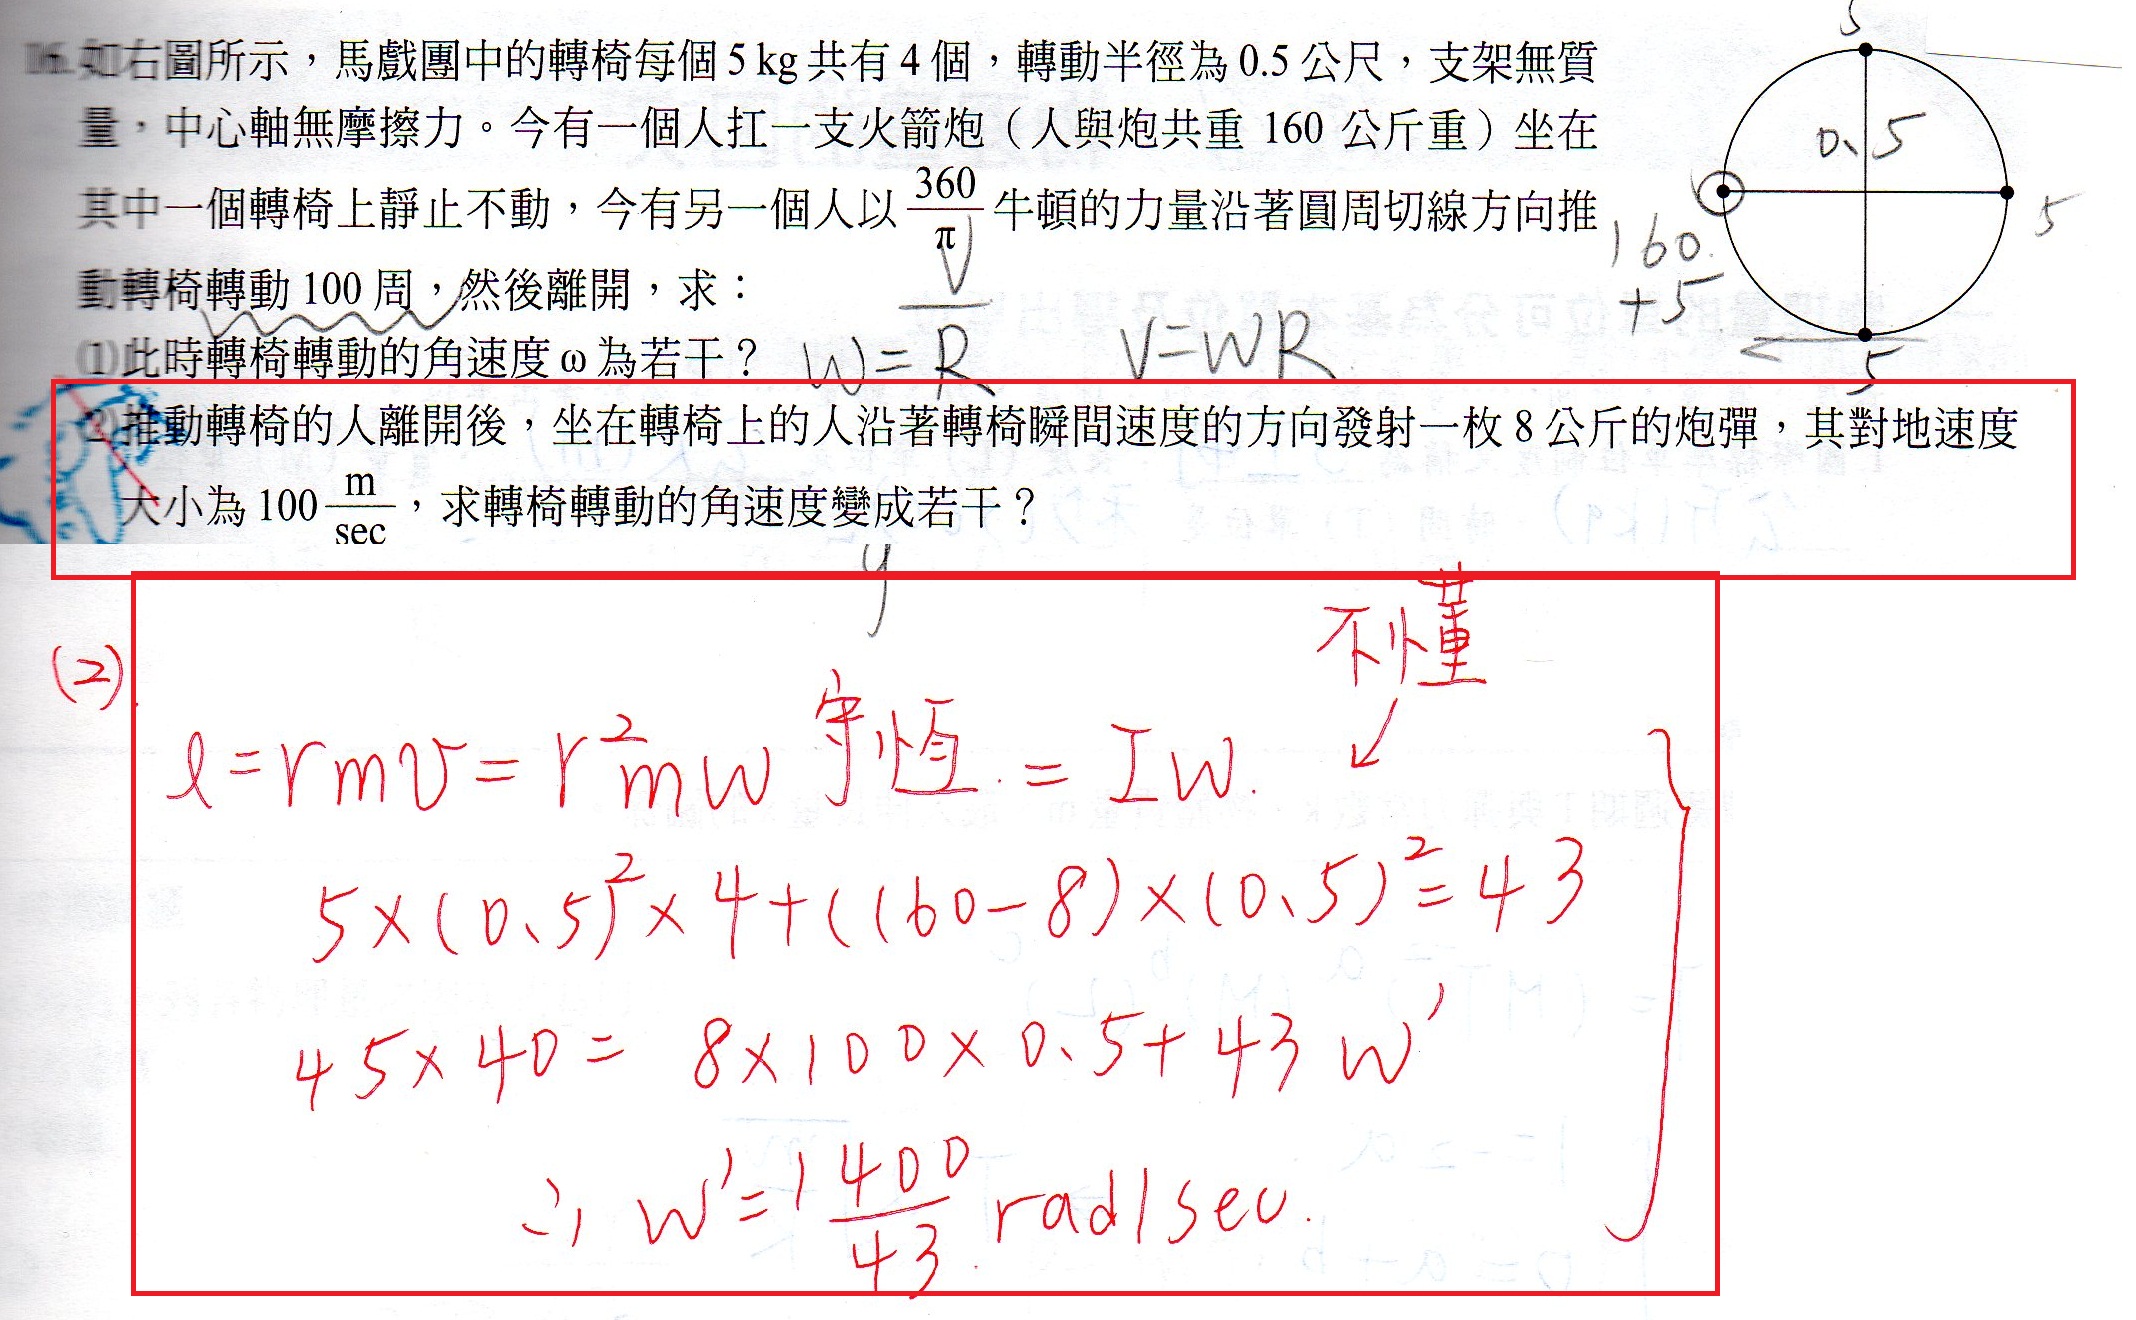 16.如右圖所示，馬戲團中的轉椅每個 5 kg 共有 4 個，轉動半徑為 0.5 公尺，支架無質
量，中心軸無摩擦力。今有一個人扛一支火箭炮（人與炮共重 160 公斤重）坐在
其中一個轉椅上靜止不動，今有另一個人以 360/π 牛頓的力量沿著圓周切線方向推
動轉椅轉動 100 周，然後離開，求：
(1)此時轉椅轉動的角速度 ω 為若干？
W = V/R
V=WR
(2)推動轉椅的人離開後，坐在轉椅上的人沿著轉椅瞬間速度的方向發射一枚 8 公斤的炮彈，其對地速度
大小為 100 m/sec，求轉椅轉動的角速度變成若干？
5
0.5
5
160
+5
5
不懂
(2)
l=rmv=r²mw 守恆.=Iw.
5×(0.5)²×4+((160-8)×(0.5)²=43
45×40= 8×100×0.5+43 w'
∴ w'=1400/43 rad/sec.